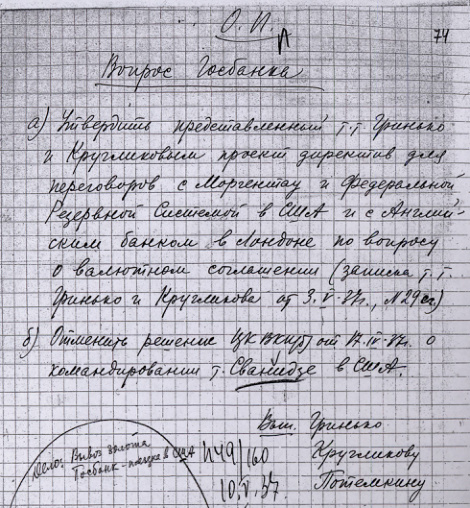 О. П.
74
Вопрос Госбанка
а) Утвердить представленный т.т Гринько
и Кругликовым проект директив для
переговоров с Моргентау и Федеральной
Резервной Системой в США и с Англий-
ским банком в Лондоне по вопросу
о валютном соглашении (записка т.т.
Гринько и Кругликова от 3.V.37г., №29сс)
б) Отменить решение ЦК ВКП(б) от 17.IV.37. о
командировании т. Сванидзе в США.
Вып. Гринько
Кругликову
Потемкину
Дело: Вывоз золота
Госбанк - поездка в США
П49/160
10.V.37.